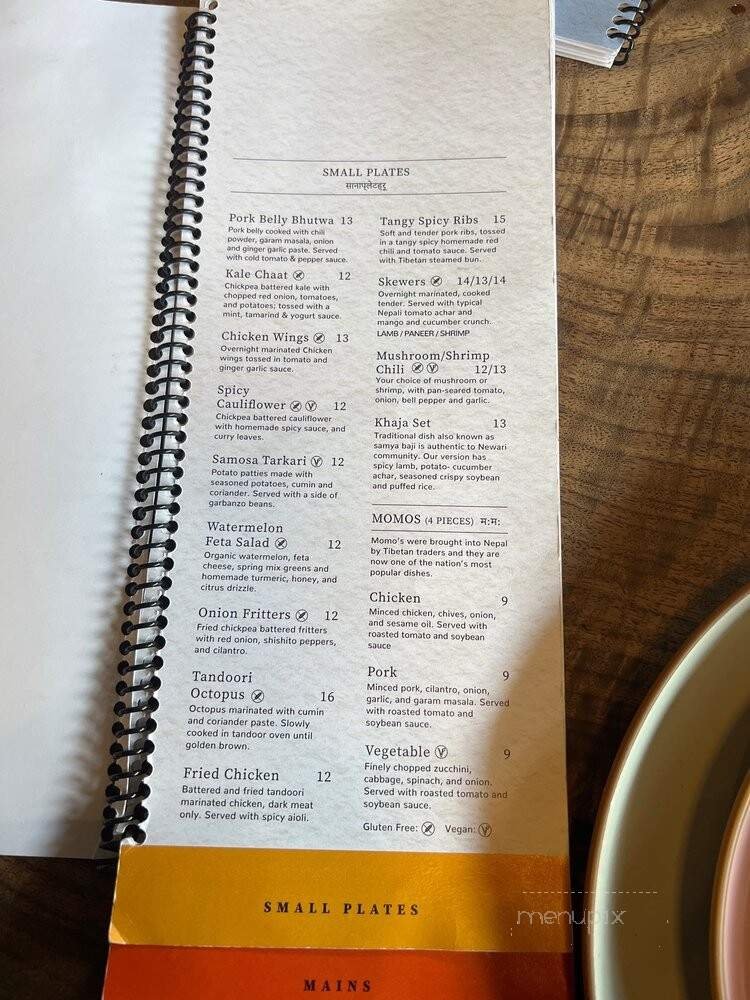 SMALL PLATES
सानाप्लेटहरू
Pork Belly Bhutwa 13
Pork belly cooked with chili
powder, garam masala, onion
and ginger garlic paste. Served
with cold tomato & pepper sauce.
Kale Chaat 12
Chickpea battered kale with
chopped red onion, tomatoes,
and potatoes; tossed with a
mint, tamarind & yogurt sauce.
Chicken Wings 13
Overnight marinated Chicken
wings tossed in tomato and
ginger garlic sauce.
Spicy
Cauliflower V 12
Chickpea battered cauliflower
with homemade spicy sauce, and
curry leaves.
Samosa Tarkari V 12
Potato patties made with
seasoned potatoes, cumin and
coriander. Served with a side of
garbanzo beans.
Watermelon
Feta Salad 12
Organic watermelon, feta
cheese, spring mix greens and
homemade turmeric, honey, and
citrus drizzle.
Onion Fritters 12
Fried chickpea battered fritters
with red onion, shishito peppers,
and cilantro.
Tandoori
Octopus 16
Octopus marinated with cumin
and coriander paste. Slowly
cooked in tandoor oven until
golden brown.
Fried Chicken 12
Battered and fried tandoori
marinated chicken, dark meat
only. Served with spicy aioli.
Tangy Spicy Ribs 15
Soft and tender pork ribs, tossed
in a tangy spicy homemade red
chili and tomato sauce. Served
with Tibetan steamed bun.
Skewers 14/13/14
Overnight marinated, cooked
tender. Served with typical
Nepali tomato achar and
mango and cucumber crunch.
LAMB / PANEER / SHRIMP
Mushroom/Shrimp
Chili V 12/13
Your choice of mushroom or
shrimp, with pan-seared tomato,
onion, bell pepper and garlic.
Khaja Set 13
Traditional dish also known as
samya baji is authentic to Newari
community. Our version has
spicy lamb, potato- cucumber
achar, seasoned crispy soybean
and puffed rice.
MOMOS (4 PIECES) म:म:
Momo's were brought into Nepal
by Tibetan traders and they are
now one of the nation's most
popular dishes.
Chicken 9
Minced chicken, chives, onion,
and sesame oil. Served with
roasted tomato and soybean
sauce
Pork 9
Minced pork, cilantro, onion,
garlic, and garam masala. Served
with roasted tomato and
soybean sauce.
Vegetable V 9
Finely chopped zucchini,
cabbage, spinach, and onion.
Served with roasted tomato and
soybean sauce.
Gluten Free: Vegan: V
SMALL PLATES
MAINS
menupix